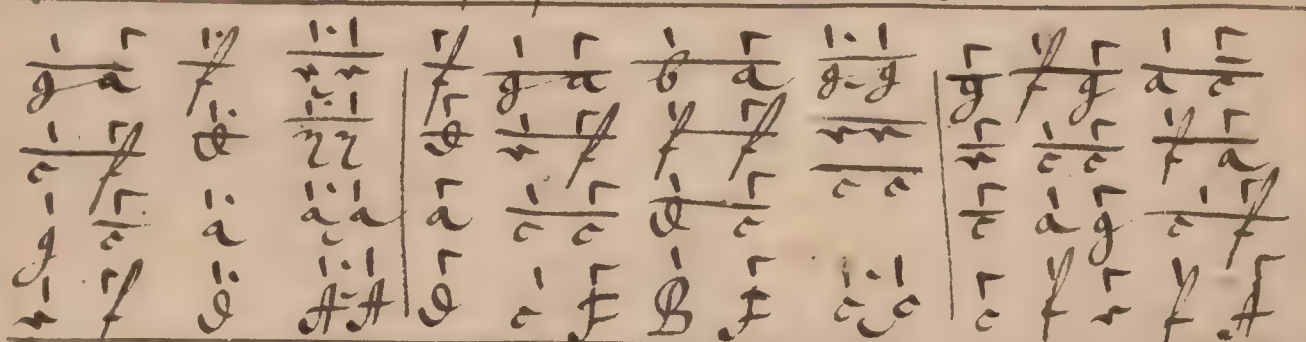 g a f e e | f g a b a g g | g f g a c
c f d | d e f f f e e | e c c f a
g c a a a | a c c d c c c | c a g c f
e f d A A | d c F B F c c | c f e f A